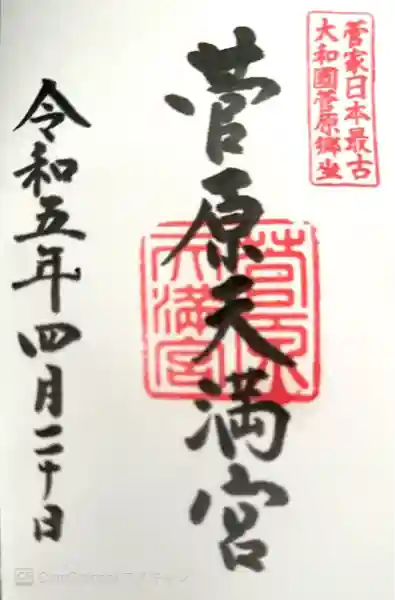 菅家日本最古
大和國菅原郷坐
菅原天満宮
菅原
天満宮
令和五年四月二十日